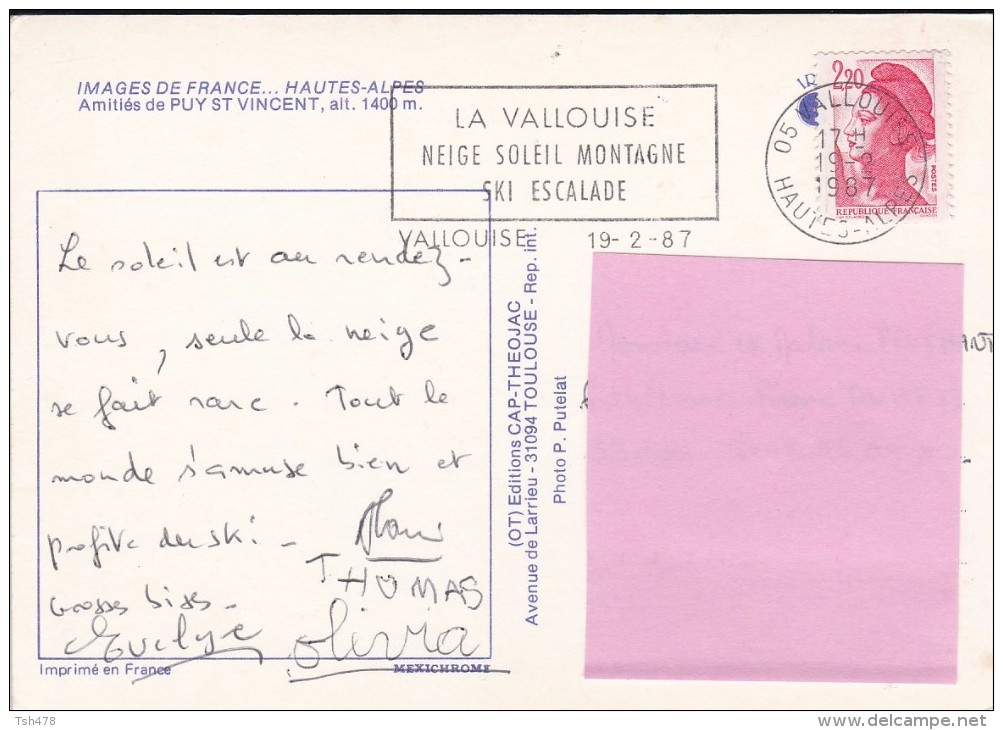 IMAGES DE FRANCE... HAUTES-ALPES
Amitiés de PUY ST VINCENT, alt. 1400 m.
LA VALLOUISE
NEIGE SOLEIL MONTAGNE
SKI ESCALADE
VALLOUISE 19-2-87
2,20
05 VALLOUISE
17 H
19-2
1987
HAUTES-ALPES
POSTES
REPUBLIQUE FRANÇAISE
Le soleil est au rendez-
vous, seule la neige
se fait rare. Tout le
monde s'amuse bien et
profite du ski.
Grosses bises.
THOMAS
Evelyne Olivia
(OT) Editions CAP-THEOJAC
Avenue de Larrieu - 31094 TOULOUSE - Rep. int.
Photo P. Putelat
Imprimé en France
MEXICHROME
Tsh478
delcampe.net